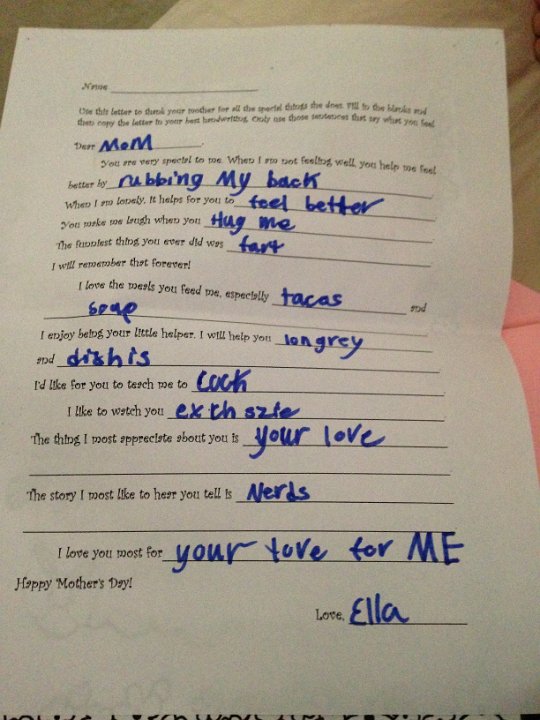 Name
Use this letter to thank your mother for all the special things she does. Fill in the blanks and
then copy the letter in your best handwriting. Only use those sentences that say what you feel.
Dear MoM
You are very special to me. When I am not feeling well, you help me feel
better by rubbing My back
When I am lonely, it helps for you to feel better
You make me laugh when you Hug me
The funniest thing you ever did was fart
I will remember that forever!
I love the meals you feed me, especially tacas and
soap
I enjoy being your little helper. I will help you longrey
and dishis
I'd like for you to teach me to Cock
I like to watch you exthszie
The thing I most appreciate about you is your love
The story I most like to hear you tell is Nerds
I love you most for your love for ME
Happy Mother's Day!
Love, Ella